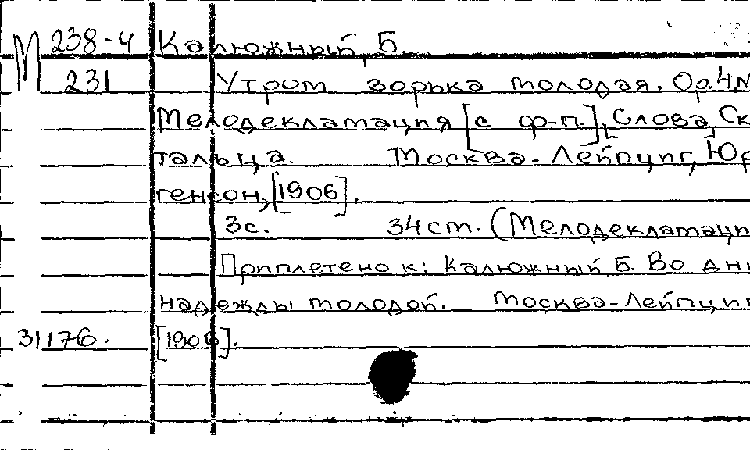 М 238-4 Калюжный, Б.
231 Утром зорька молодая. Ор.4№
Мелодекламация [с ф-п.], Слова, Ск
тальца Москва-Лейпциг, Юр
генсон, [1906].
3с. 34 ст. (Мелодекламаци
Приплетено к: Калюжный, Б. Во дни
надежды молодой. Москва-Лейпциг
31176. [1906].